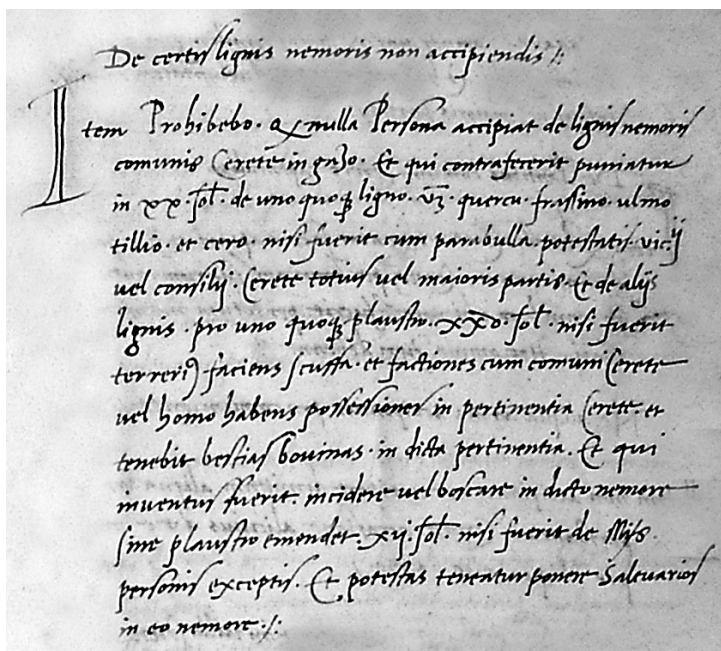 De certis lignis nemoris non accipiendis /:
Item Prohibebo. Qꝫ nulla Persona accipiat de lignis nemoris
comunis Cerete in gazo. Et qui contrafecerit puniatur
in xx. sol. de uno quoqꝫ ligno. vz. quercu. frassino. ulmo
tillio. et cero. nisi fuerit cum parabulla. potestatis. vicij
vel consilij. Cerete totius vel maioris partis. Et de alijs
lignis. pro uno quoqꝫ plaustro. sol. nisi fuerit
terreriꝰ faciens scuffa. et factiones cum comuni Cerete
vel homo habens possessiones in pertinentia Cerete. et
tenebit bestias bovinas. in dicta pertinentia. Et qui
inventus fuerit. incidere vel boscare in dicto nemore
sine plaustro emendet. xij. sol. nisi fuerit de
personis exceptis. Et potestas teneatur ponere Saltuarios
in eo nemore. /: